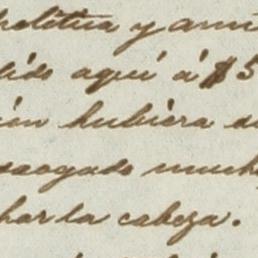 política y ami
lido aquí á $5
ión hubiera
saogado much
har la cabeza.